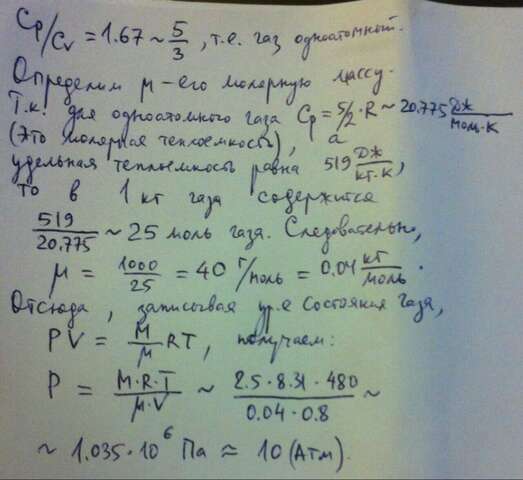 Cp/Cv = 1.67 ~ 5/3, т.е. газ одноатомный.
Определим μ - его молярную массу.
Т.к. для одноатомного газа Cp = 5/2·R ~ 20.775 Дж/моль·К
(это молярная теплоемкость), а
удельная теплоемкость равна 519 Дж/кг·К,
то в 1 кг газа содержится
519/20.775 ~ 25 моль газа. Следовательно,
μ = 1000/25 = 40 г/моль = 0.04 кг/моль.
Отсюда, записывая ур-е состояния газа,
PV = M/μ RT, получаем:
P = M·R·T/μ·V ~ 2.5·8.31·480/0.04·0.8 ~
~ 1.035·10^6 Па ≈ 10 (Атм).